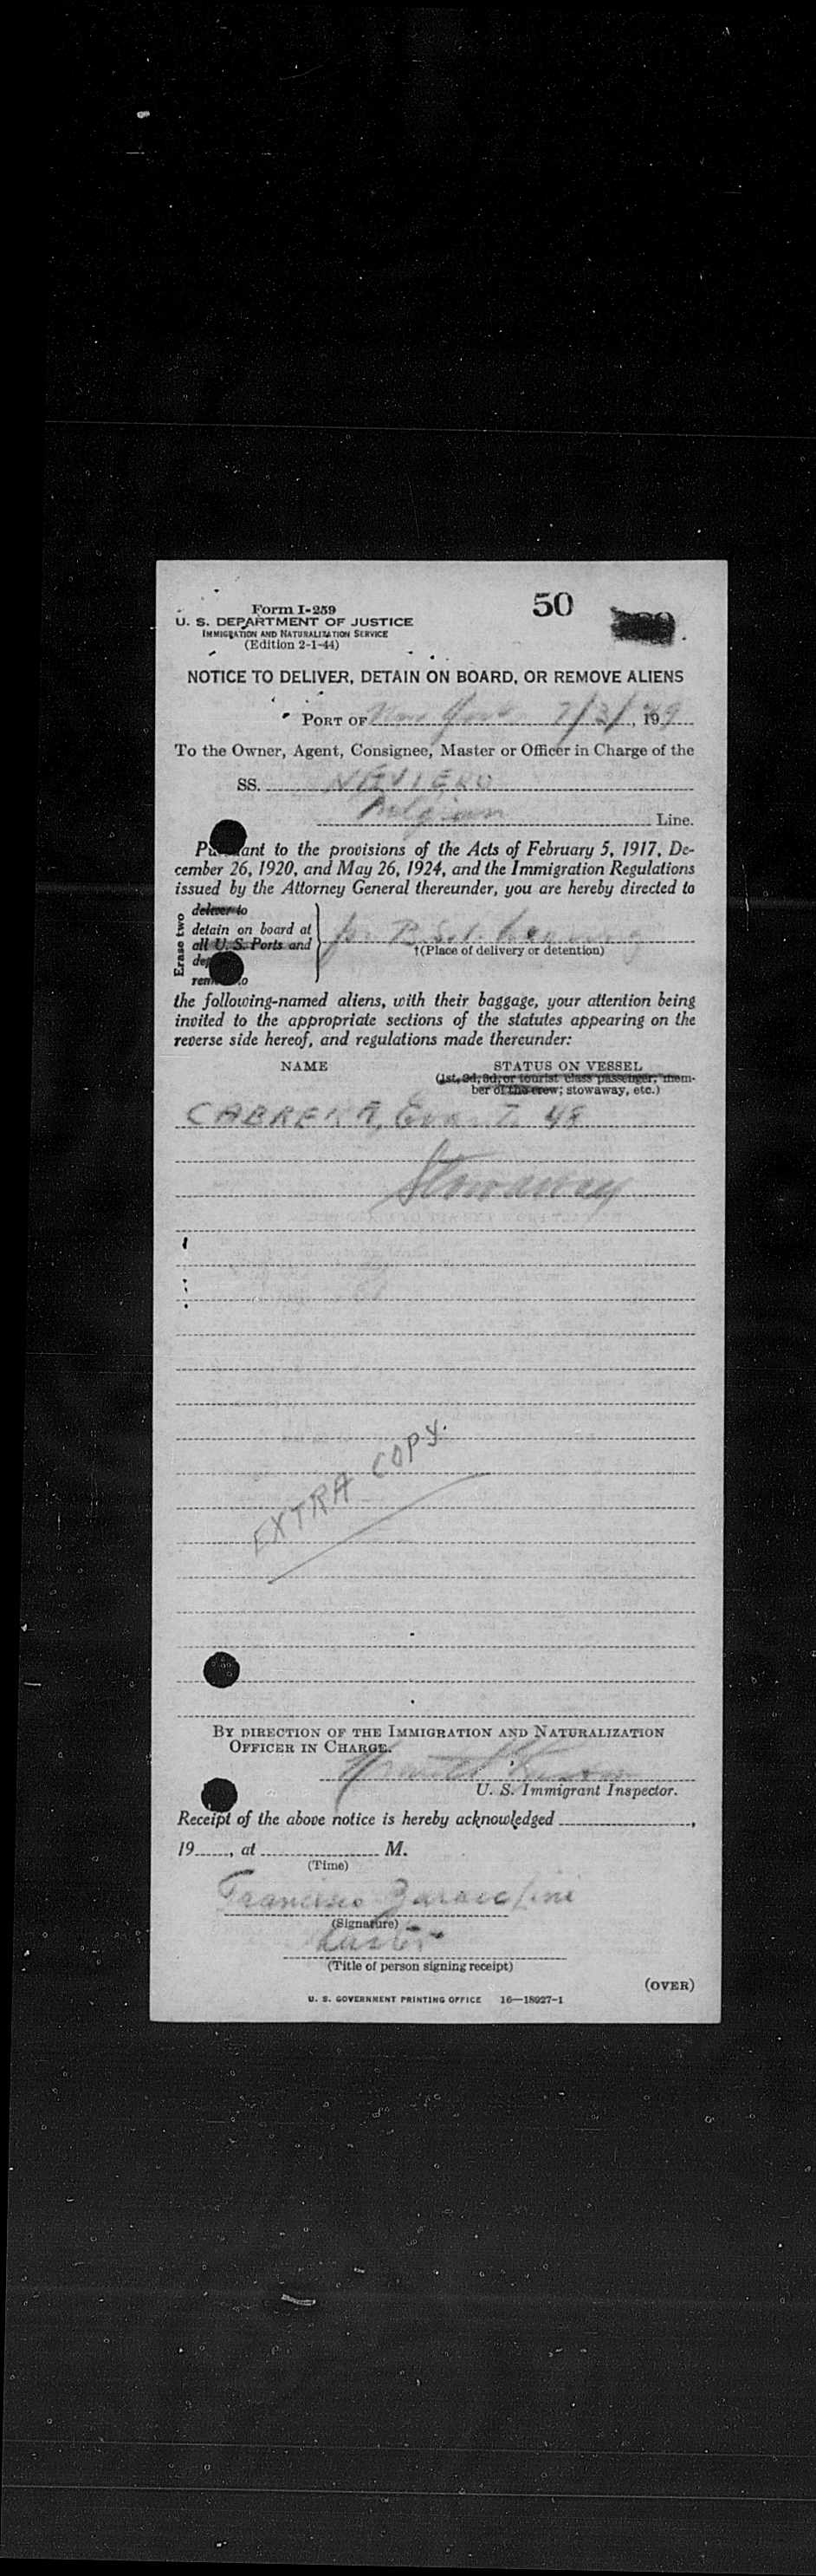 50
Form I-259
U. S. DEPARTMENT OF JUSTICE
IMMIGRATION AND NATURALIZATION SERVICE
(Edition 2-1-44)
NOTICE TO DELIVER, DETAIN ON BOARD, OR REMOVE ALIENS
PORT OF New York 7/3/, 1949
To the Owner, Agent, Consignee, Master or Officer in Charge of the
SS.
Belgian Line.
ant to the provisions of the Acts of February 5, 1917, De-
cember 26, 1920, and May 26, 1924, and the Immigration Regulations
issued by the Attorney General thereunder, you are hereby directed to
Erase two
deliver to
detain on board at
all U. S. Ports and
for
†(Place of delivery or detention)
the following-named aliens, with their baggage, your attention being
invited to the appropriate sections of the statutes appearing on the
reverse side hereof, and regulations made thereunder:
NAME STATUS ON VESSEL
(1st, 2d, 3d, or tourist class passenger; mem-
ber of the crew; stowaway, etc.)
CABRERA, 48
Stowaway
EXTRA COPY.
BY DIRECTION OF THE IMMIGRATION AND NATURALIZATION
OFFICER IN CHARGE.
U. S. Immigrant Inspector.
Receipt of the above notice is hereby acknowledged ,
19 , at M.
(Time)
Francisco
(Signature)
(Title of person signing receipt)
(OVER)
U. S. GOVERNMENT PRINTING OFFICE 16—18927-1